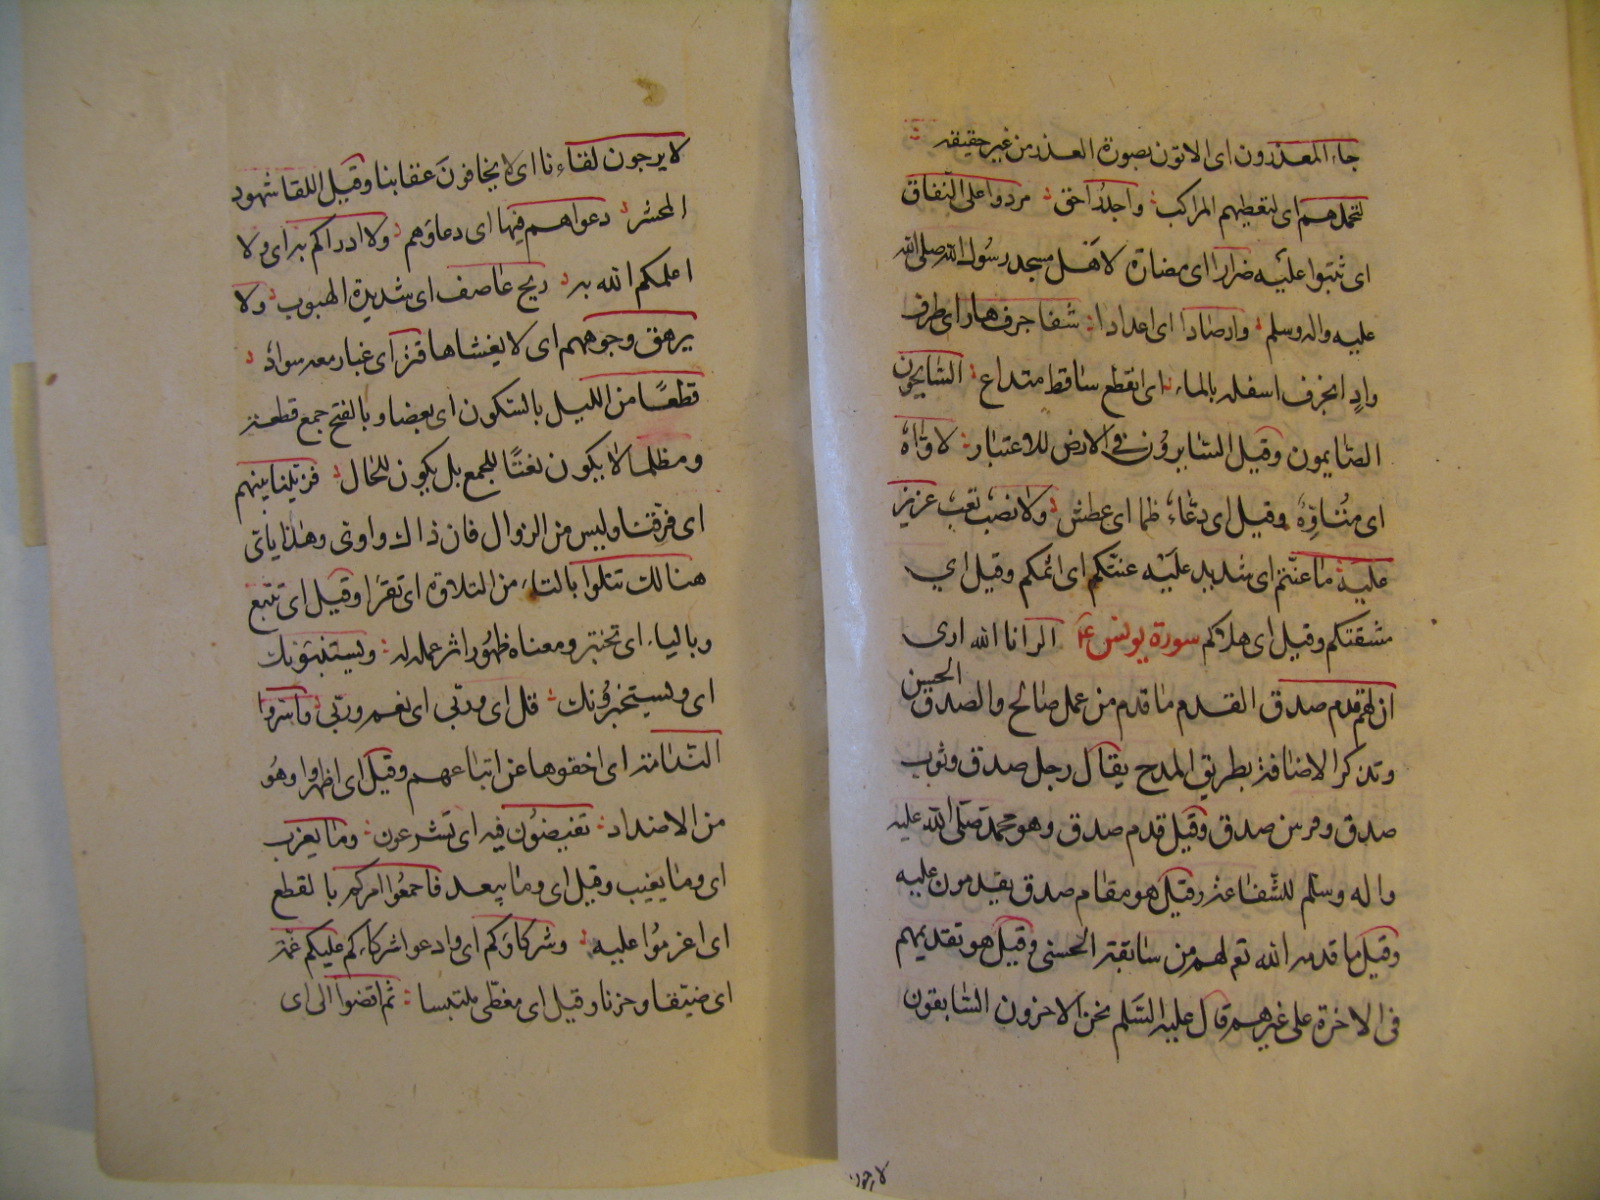 جاء المعذرون اى الاتون بصورة العذر من غير حقيقه
لتحملهم اى لتعطيهم المراكب واجدر احق مردوا على النفاق
اى ثبتوا عليه ضرارا اى مضارة لاهل مسجد رسول الله صلى الله
عليه واله وسلم وارصادا اى اعدادا شفا جرف هار اى طرف
واد انجرف اسفله بالماء اى انقطع ساقط متداع السايحون
الصايمون وقيل السايرون فى الارض للاعتبار لاواه
اى متأوه وقيل اى دعاء ظما اى عطش ولا نصب تعب عزيز
عليه ما عنتم اى شديد عليه عنتكم اى اثمكم وقيل اي
مشقتكم وقيل اى هلاككم سورة يونس عم الر انا الله ارى
ان لهم قدم صدق القدم ما قدم من عمل صالح والصدق الحسن
وتذكر الاضافة بطريق المدح يقال رجل صدق وثوب
صدق وفرس صدق وقيل قدم صدق وهو محمد صلى الله عليه
واله وسلم للشفاعة وقيل هو مقام صدق يقدمون عليه
وقيل ما قدمه الله تع لهم من سابقة الحسنى وقيل هو تقديمهم
فى الاخرة على غيرهم قال عليه السلم نحن الاخرون السابقون
لا يرجون
لا يرجون لقاءنا اى لا يخافون عقابنا وقيل اللقا شهود
المحشر دعواهم فيها اى دعاؤهم ولا ادراكم به اى ولا
اعلمكم الله به ريح عاصف اى شديدة الهبوب ولا
يرهق وجوههم اى لا يغشاها قتر اى غبار معه سواد
قطعًا من الليل بالسكون اى بعضا وبالفتح جمع قطعة
ومظلما لا يكون نعتًا للجمع بل يكون للحال فزيلنا بينهم
اى فرقنا وليس من الزوال فان ذاك واوى وهذا ياتى
هنالك تتلوا بالتاء من التلاوة اى تقرا وقيل اى تتبع
وبالياء اى تختبر ومعناه ظهور اثر عمله له ويستنبؤنك
اى ويستخبرونك قل اى وربى اى نعم وربى واسروا
الندامة اى اخفوها عن اتباعهم وقيل اى اظهروا وهو
من الاضداد تفيضون فيه اى تشرعون وما يعزب
اى وما يغيب وقيل اى وما يبعد فاجمعوا امركم بالقطع
اى اعزموا عليه وشركاؤكم اى وادعوا شركاءكم عليكم غمة
اى ضيقا وحزنا وقيل اى مغطى ملتبسا ثم اقضوا الى اى